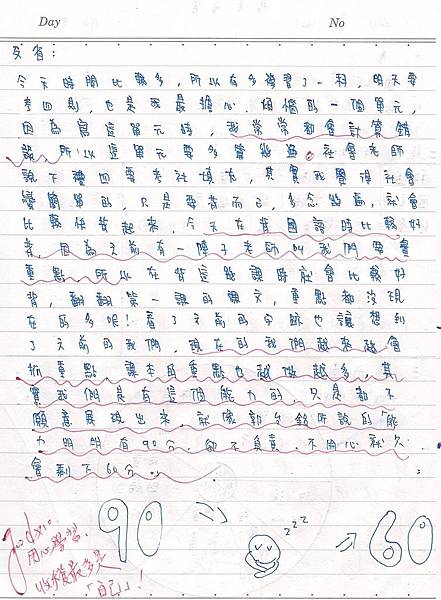 Day No
反省：
今天時間比較多，所以有多複習了一科，明天要
考四則，也是我最擔心、煩惱的一個單元，
因為寫這單元時，我常常都會計算錯
誤，所以這單元要多算幾遍。社會老師
說下禮四要考社填充，其實我覺得社會
蠻簡單的，只是要背而已，多念幾遍，就會
比較快背起來，今天在背國讀時比較好
背，因為之前有一陣子老師叫我們要畫
重點，所以在背這幾課時就會比較好
背，翻翻第一課的課文，重點都沒現
在的多呢！看了之前的字跡也讓想到
了之前的我們，現在的我們越來越會
抓重點，課本的重點也越做越多，其
實我們是有這個能力的，只是都不
願意展現出來，就像郭台銘所說的「能
力明明有90分，卻不負責、不用心就只
會剩下60分。
90 zzz 60
Good
用心學習，
收穫最多是
「自己」！